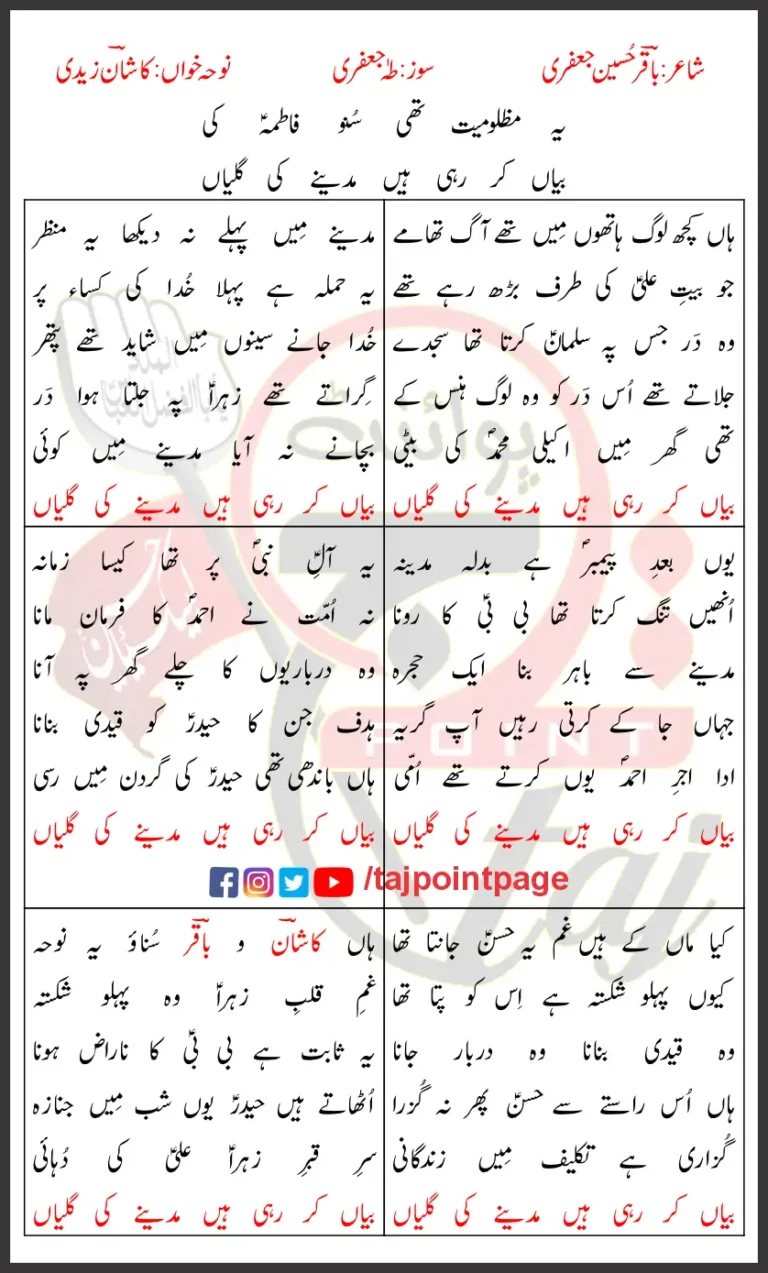 شاعر: باقرؔ حُسین جعفری
سوز: طہٰ جعفری
نوحہ خواں: کاشانؔ زیدی
یہ مظلومیت تھی سُنو فاطمہؑ کی
بیاں کر رہی ہیں مدینے کی گلیاں
ہاں کچھ لوگ ہاتھوں مِیں تھے آگ تھامے
جو بیتِ علیؑ کی طرف بڑھ رہے تھے
وہ دَر جس پہ سلمانؑ کرتا تھا سجدے
جلاتے تھے اُس دَر کو وہ لوگ ہنس کے
تھی گھر مِیں اکیلی محمدؐ کی بیٹی
بیاں کر رہی ہیں مدینے کی گلیاں
مدینے مِیں پہلے نہ دیکھا یہ منظر
یہ حملہ ہے پہلا خُدا کی کساء پر
خُدا جانے سینوں مِیں شاید تھے پتھر
گِراتے تھے زہراؑ پہ جلتا ہوا دَر
بچانے نہ آیا مدینے مِیں کوئی
بیاں کر رہی ہیں مدینے کی گلیاں
یوں بعدِ پیمبرؐ ہے بدلہ مدینہ
اُنھیں تنگ کرتا تھا بی بیؑ کا رونا
مدینے سے باہر بنا ایک حجرہ
جہاں جا کے کرتی رہیں آپ گریہ
ادا اجرِ احمدؐ یوں کرتے تھے اُمّی
بیاں کر رہی ہیں مدینے کی گلیاں
یہ آلِؑ نبیؐ پر تھا کیسا زمانہ
نہ اُمّت نے احمدؐ کا فرمان مانا
وہ درباریوں کا چلے گھر پہ آنا
ہدف جن کا حیدرؑ کو قیدی بنانا
ہاں باندھی تھی حیدرؑ کی گردن مِیں رسی
بیاں کر رہی ہیں مدینے کی گلیاں
/tajpointpage
کیا ماں کے ہیں غم یہ حسنؑ جانتا تھا
کیوں پہلو شکستہ ہے اِس کو پتا تھا
وہ قیدی بنانا وہ دربار جانا
ہاں اُس راستے سے حسنؑ پھر نہ گُزرا
گُزاری ہے تکلیف مِیں زندگانی
بیاں کر رہی ہیں مدینے کی گلیاں
ہاں کاشانؔ و باقرؔ سُناؤ یہ نوحہ
غمِ قلبِ زہراؑ وہ پہلو شکستہ
یہ ثابت ہے بی بیؑ کا ناراض ہونا
اُٹھاتے ہیں حیدرؑ یوں شب مِیں جنازہ
سرِ قبرِ زہراؑ علیؑ کی دُہائی
بیاں کر رہی ہیں مدینے کی گلیاں
پوائنٹ
POINT
taj